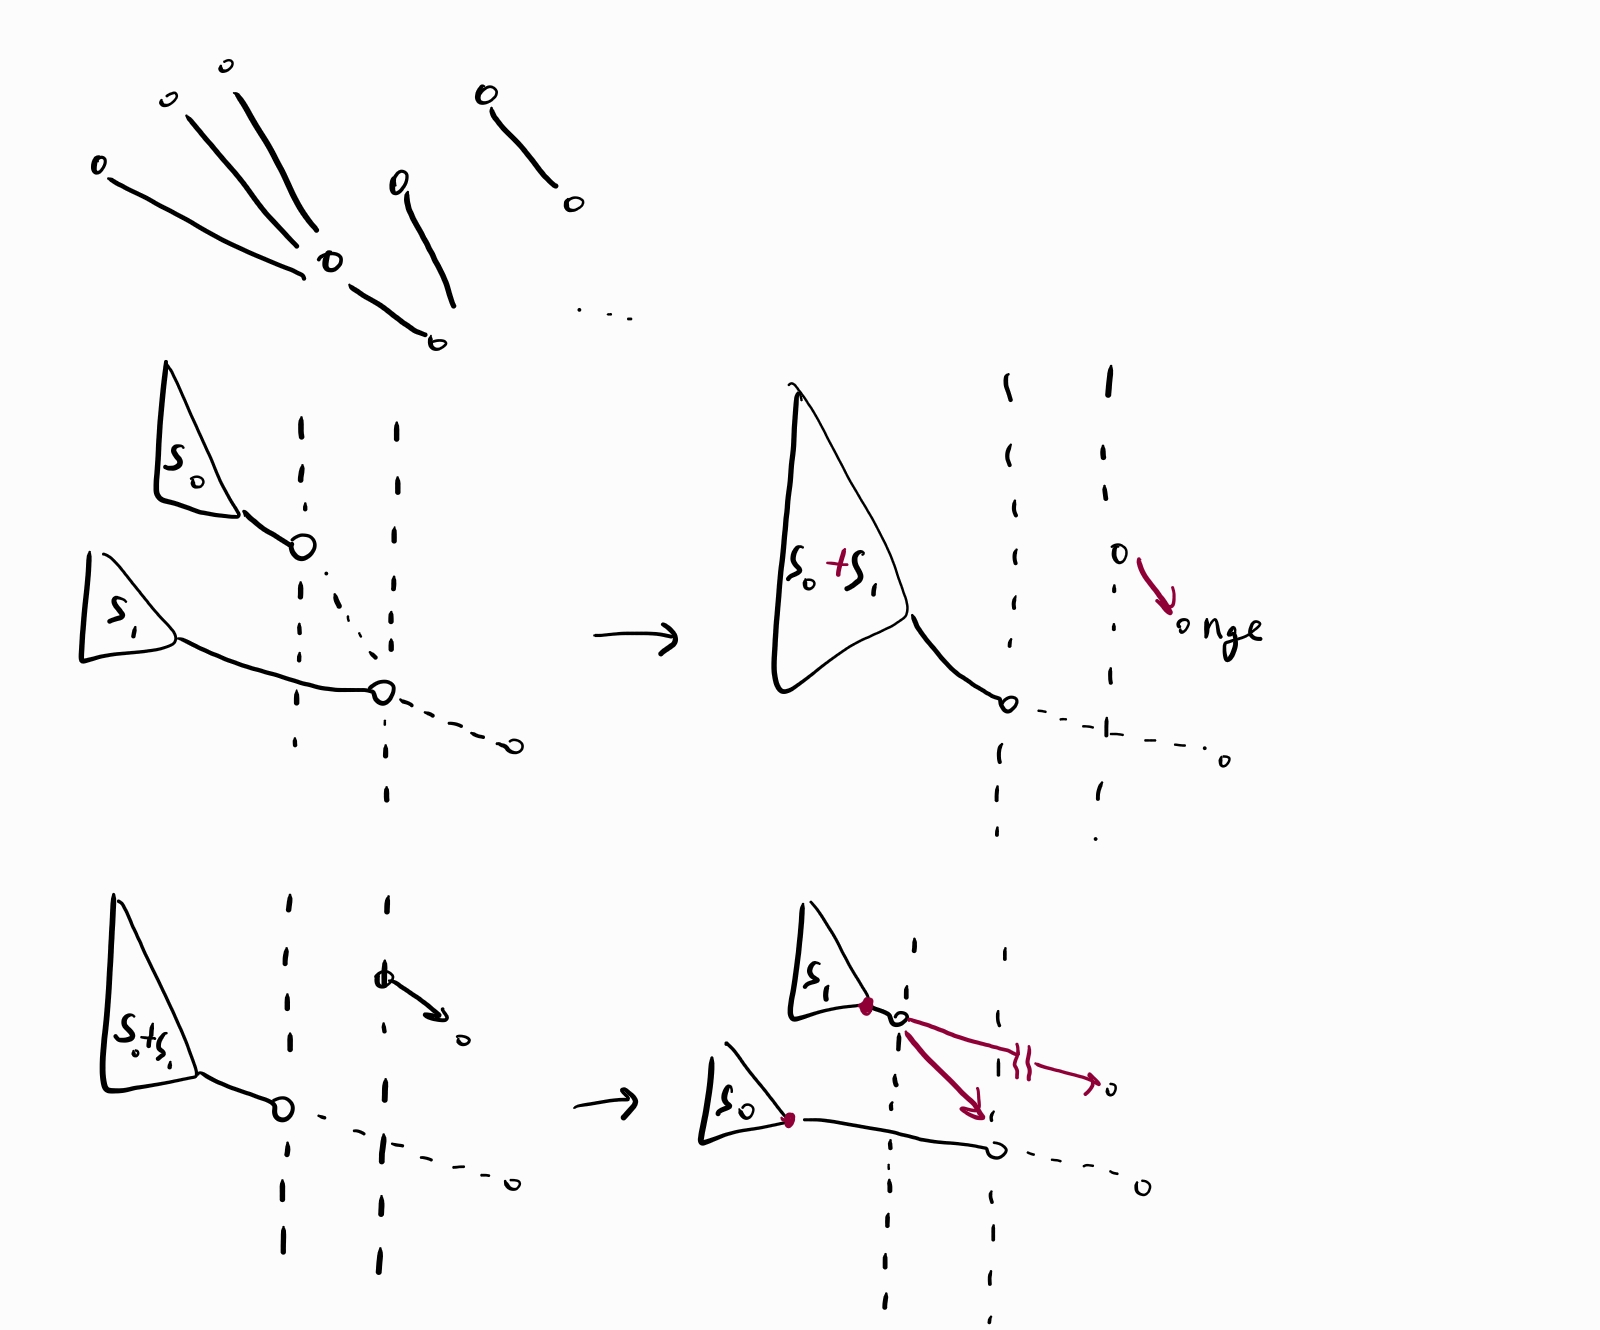 S₀
S₁
S₀ + S₁
nge
S₀ + S₁
S₁
S₀